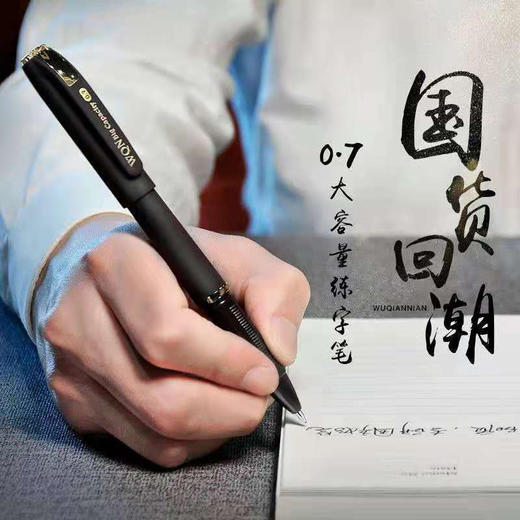 国货回潮
WUQIANNIAN
0.7大容量练字笔
WQN Big Capacity